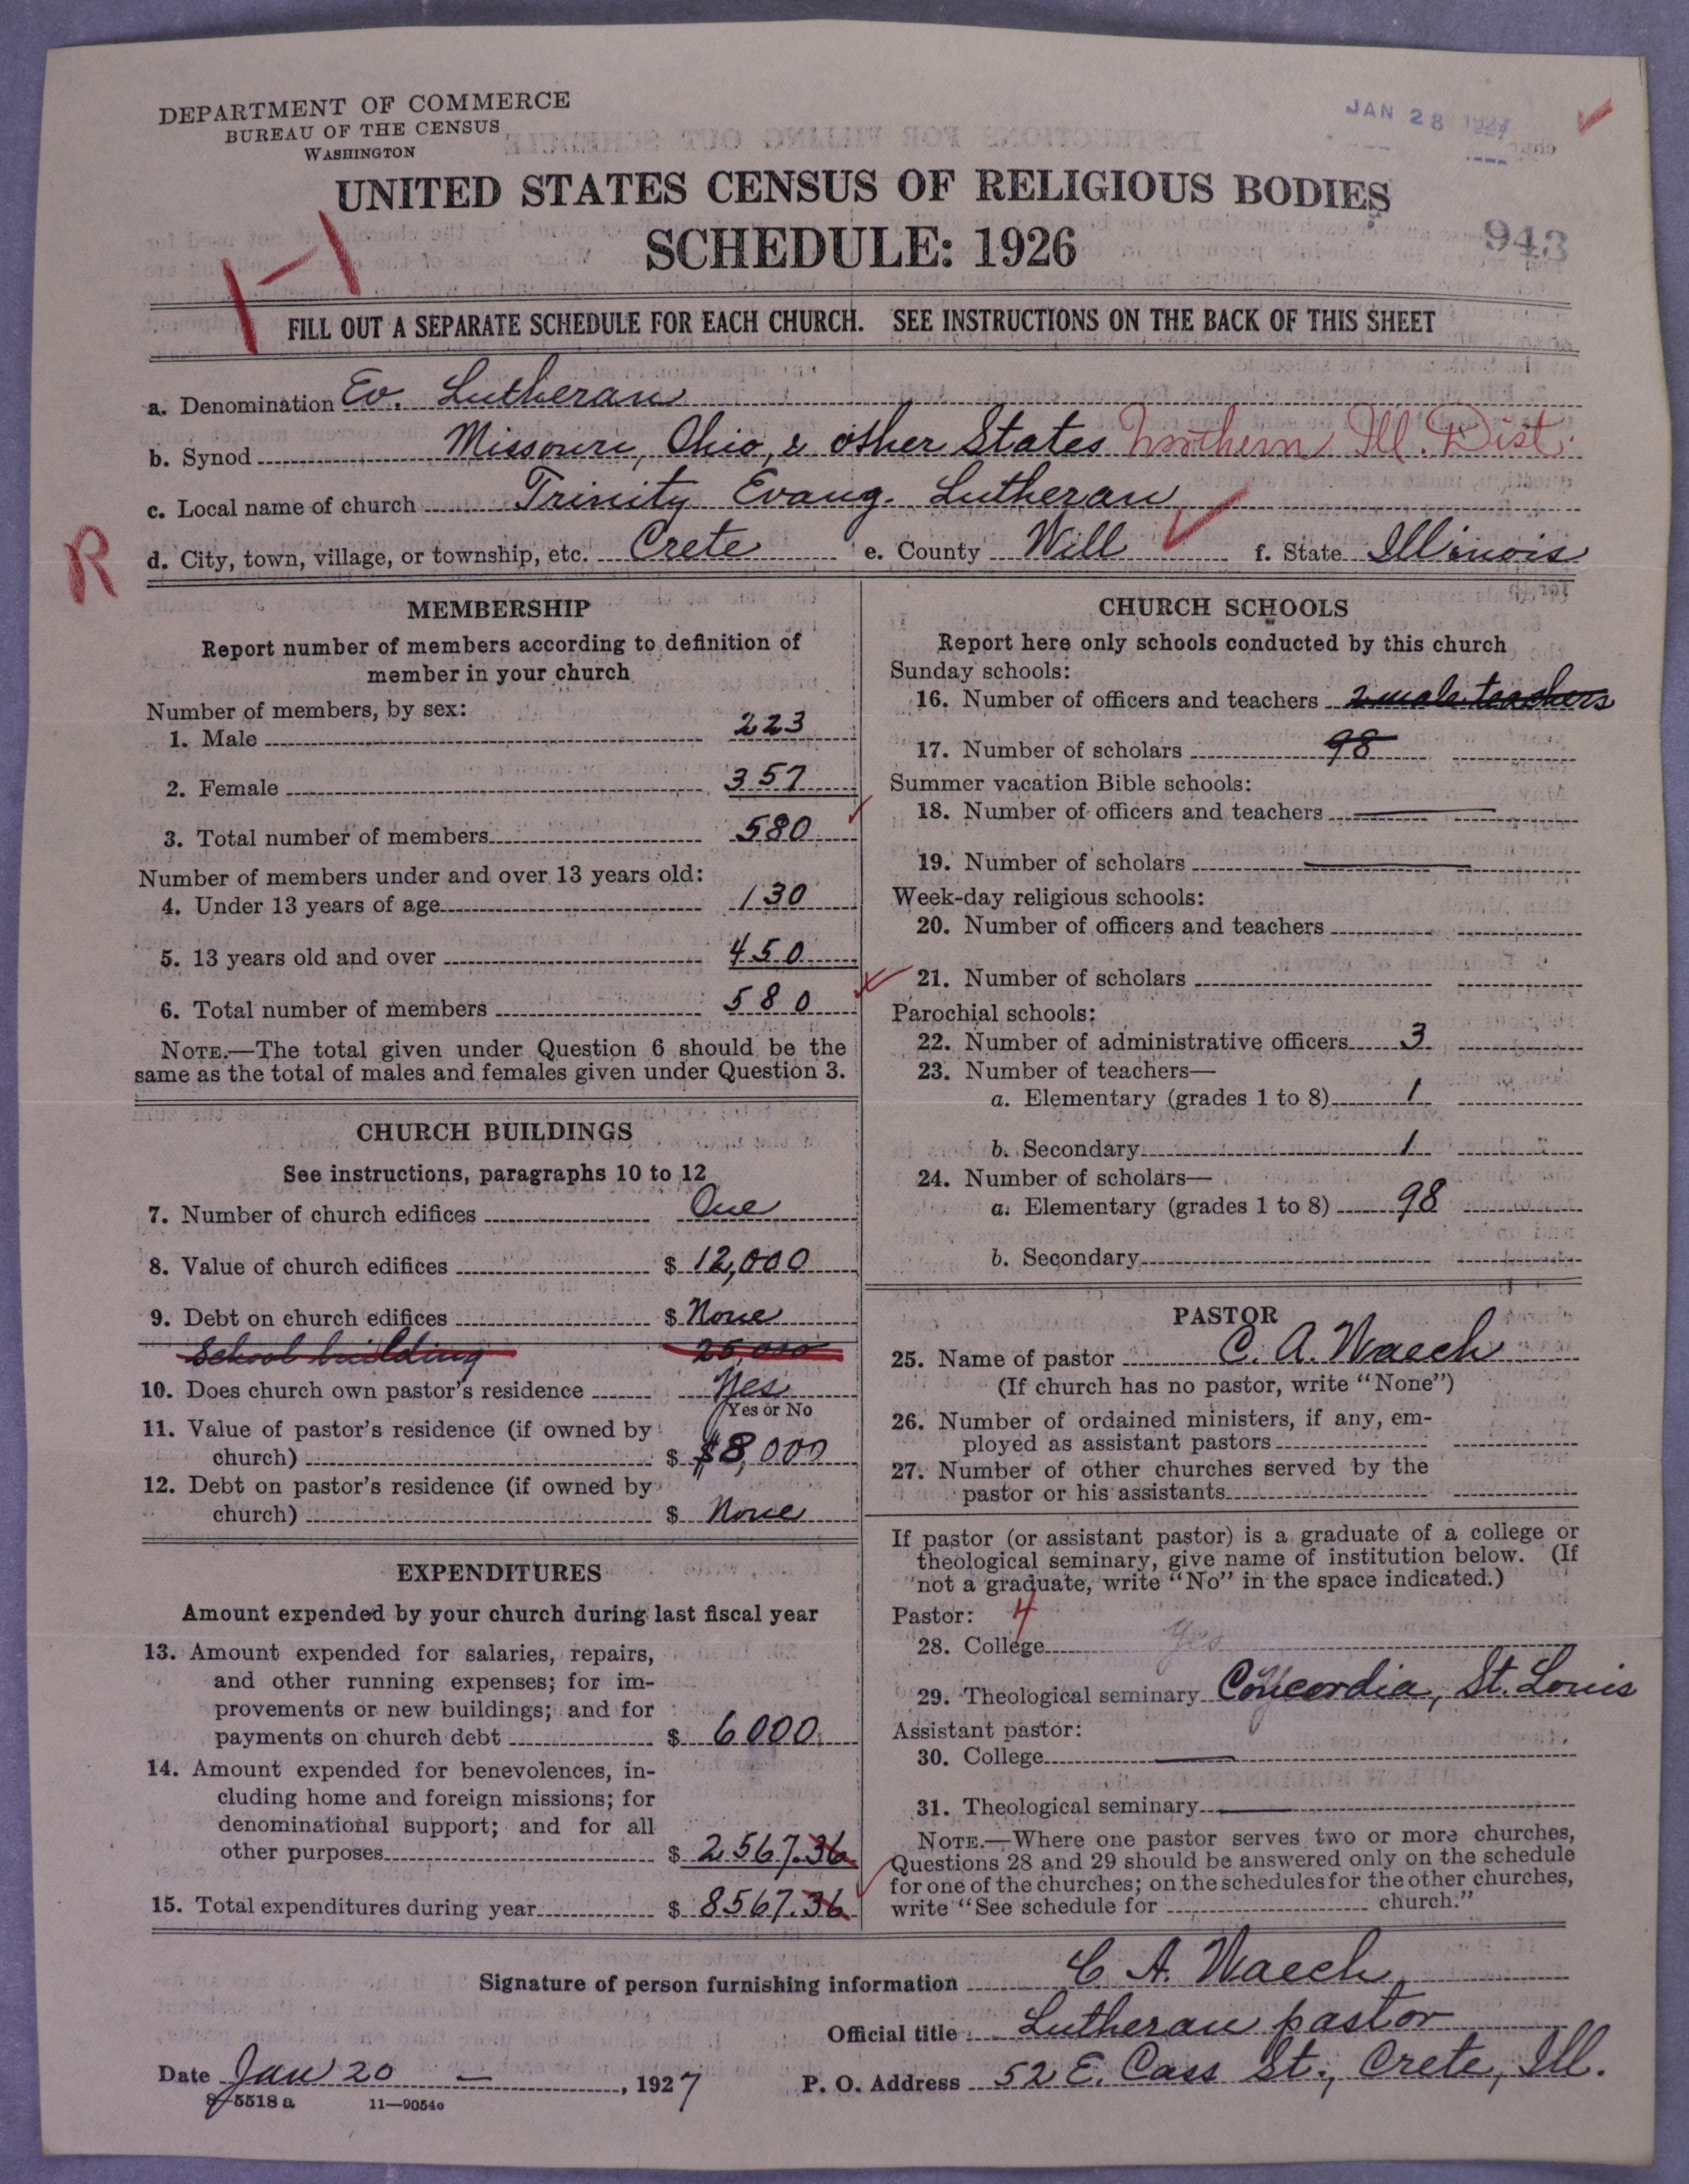 DEPARTMENT OF COMMERCE
BUREAU OF THE CENSUS
WASHINGTON
JAN 28 1927
UNITED STATES CENSUS OF RELIGIOUS BODIES
SCHEDULE: 1926
943
FILL OUT A SEPARATE SCHEDULE FOR EACH CHURCH. SEE INSTRUCTIONS ON THE BACK OF THIS SHEET
a. Denomination Ev. Lutheran
b. Synod Missouri, Ohio, & other States Northern Ill. Dist.
c. Local name of church Trinity Evang. Lutheran
R
d. City, town, village, or township, etc. Crete e. County Will f. State Illinois
MEMBERSHIP
Report number of members according to definition of
member in your church
Number of members, by sex:
1. Male 223
2. Female 357
3. Total number of members 580
Number of members under and over 13 years old:
4. Under 13 years of age 130
5. 13 years old and over 450
6. Total number of members 580
NOTE.—The total given under Question 6 should be the
same as the total of males and females given under Question 3.
CHURCH BUILDINGS
See instructions, paragraphs 10 to 12
7. Number of church edifices One
8. Value of church edifices $ 12,000
9. Debt on church edifices $ None
School building 25,000
10. Does church own pastor's residence Yes
Yes or No
11. Value of pastor's residence (if owned by
church) $ $8,000
12. Debt on pastor's residence (if owned by
church) $ None
EXPENDITURES
Amount expended by your church during last fiscal year
13. Amount expended for salaries, repairs,
and other running expenses; for im-
provements or new buildings; and for
payments on church debt $ 6000
14. Amount expended for benevolences, in-
cluding home and foreign missions; for
denominational support; and for all
other purposes $ 2567.36
15. Total expenditures during year $ 8567.36
CHURCH SCHOOLS
Report here only schools conducted by this church
Sunday schools:
16. Number of officers and teachers 2 male teachers
17. Number of scholars 98
Summer vacation Bible schools:
18. Number of officers and teachers
19. Number of scholars
Week-day religious schools:
20. Number of officers and teachers
21. Number of scholars
Parochial schools:
22. Number of administrative officers 3
23. Number of teachers—
a. Elementary (grades 1 to 8) 1
b. Secondary 1
24. Number of scholars—
a. Elementary (grades 1 to 8) 98
b. Secondary
PASTOR
25. Name of pastor C. A. Waech
(If church has no pastor, write "None")
26. Number of ordained ministers, if any, em-
ployed as assistant pastors
27. Number of other churches served by the
pastor or his assistants
If pastor (or assistant pastor) is a graduate of a college or
theological seminary, give name of institution below. (If
not a graduate, write "No" in the space indicated.)
Pastor: 4
28. College Yes
29. Theological seminary Concordia, St. Louis
Assistant pastor:
30. College
31. Theological seminary
NOTE.—Where one pastor serves two or more churches,
Questions 28 and 29 should be answered only on the schedule
for one of the churches; on the schedules for the other churches,
write "See schedule for church."
Signature of person furnishing information C A. Waech,
Official title Lutheran pastor
Date Jan 20 —, 1927
P. O. Address 52 E. Cass St., Crete, Ill.
8-5518 a 11-9054o